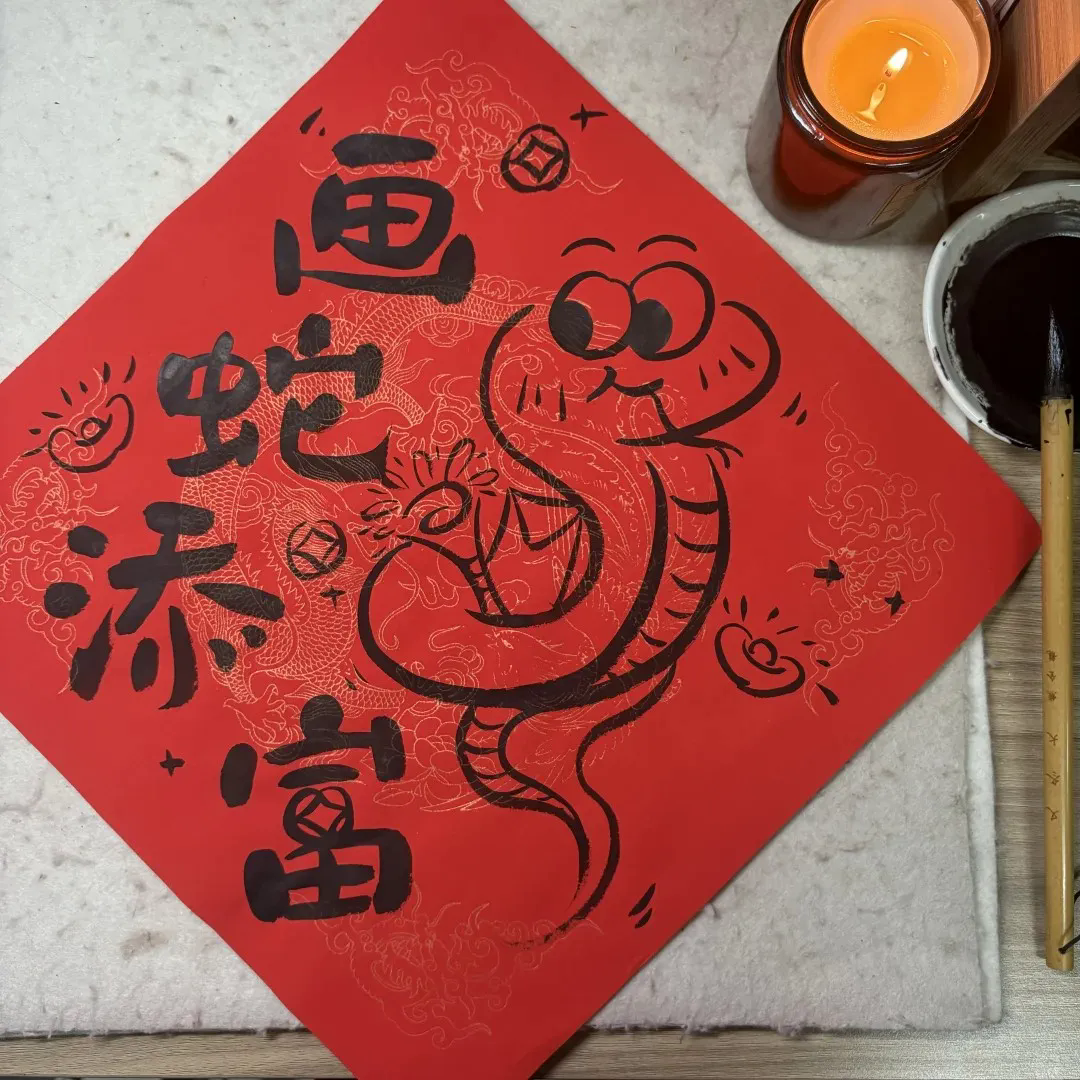 画
蛇
添
富